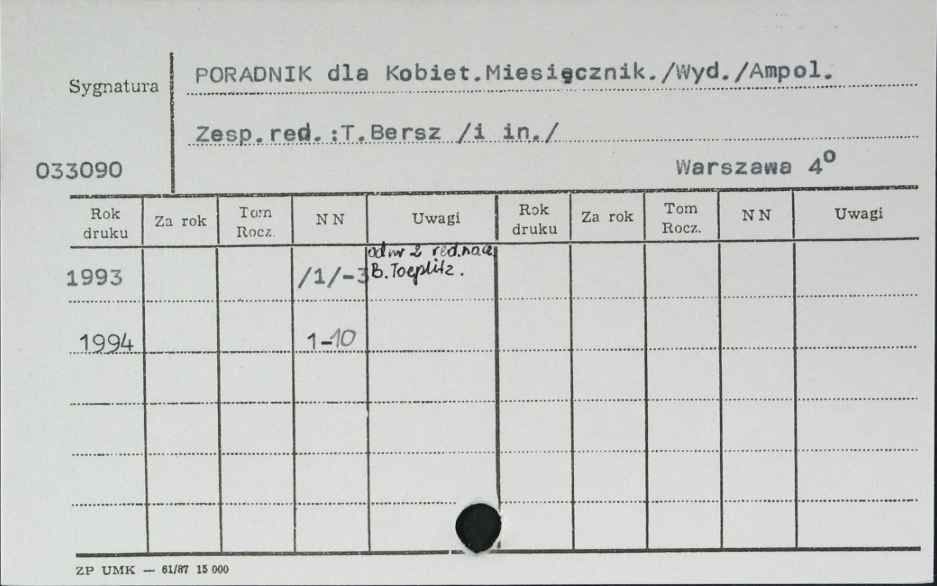 Sygnatura
PORADNIK dla Kobiet.Miesięcznik./Wyd./Ampol.
Zesp.red.:T.Bersz /i in./
033090
Warszawa 4º
Rok druku Za rok Tom Rocz. NN Uwagi Rok druku Za rok Tom Rocz. NN Uwagi
od nr 2 red.nacz
1993 /1/-3 B.Toeplitz.
1994 1-10
ZP UMK — 61/87 15 000